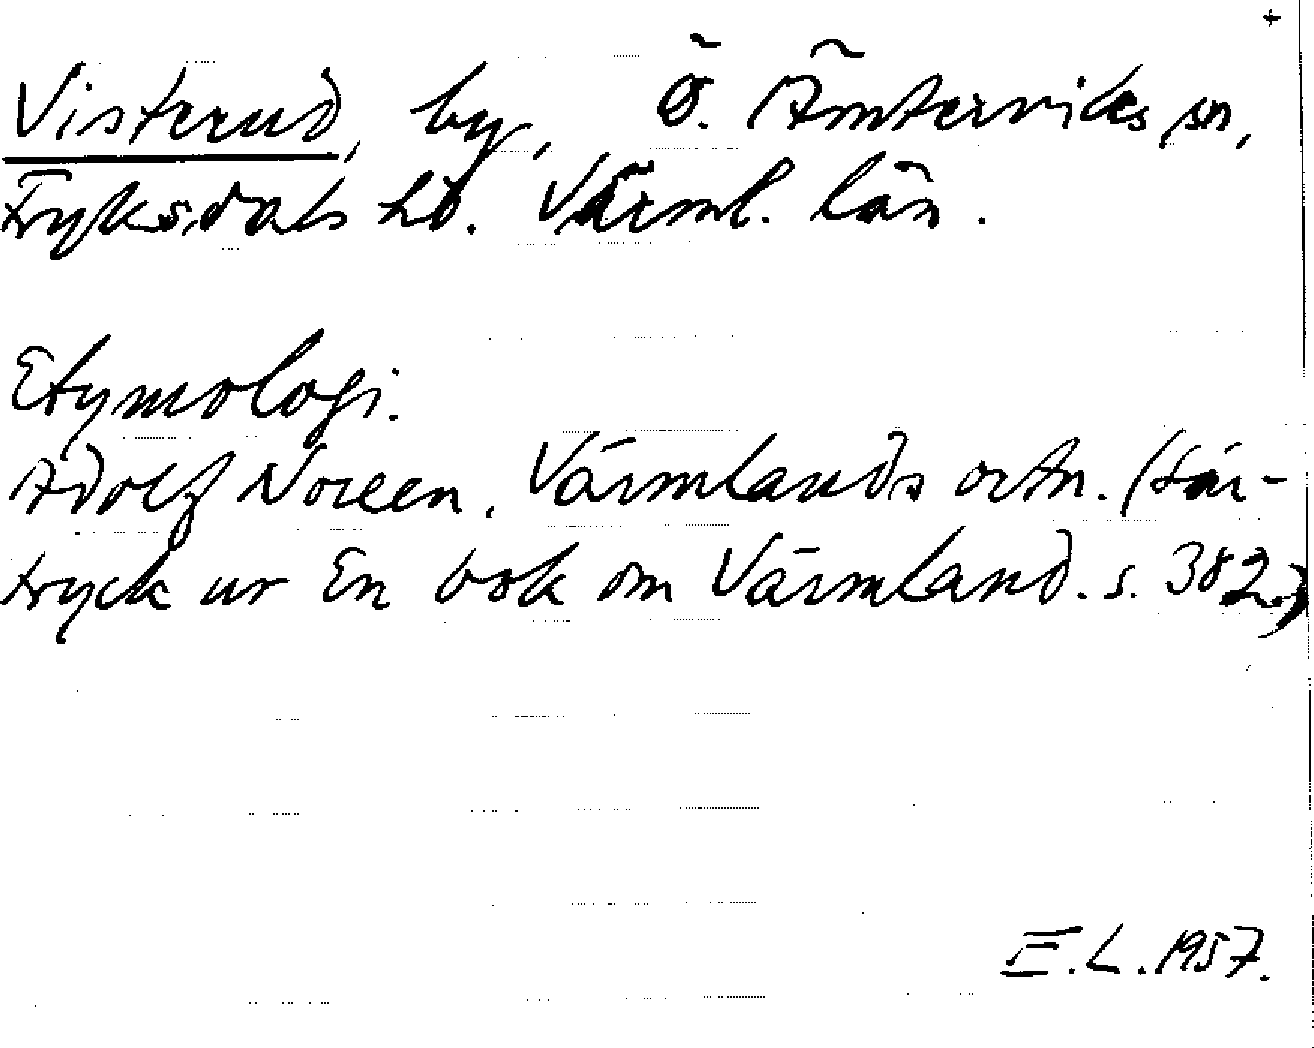 +
Visterud, by, Ö. Ämterviks sn,
Fryksdals hd. Värml. län.
Etymologi.
Adolf Noreen, Värmlands ortn. (Sär-
tryck ur En bok om Värmland. s. 382.)
E.L. 1957.